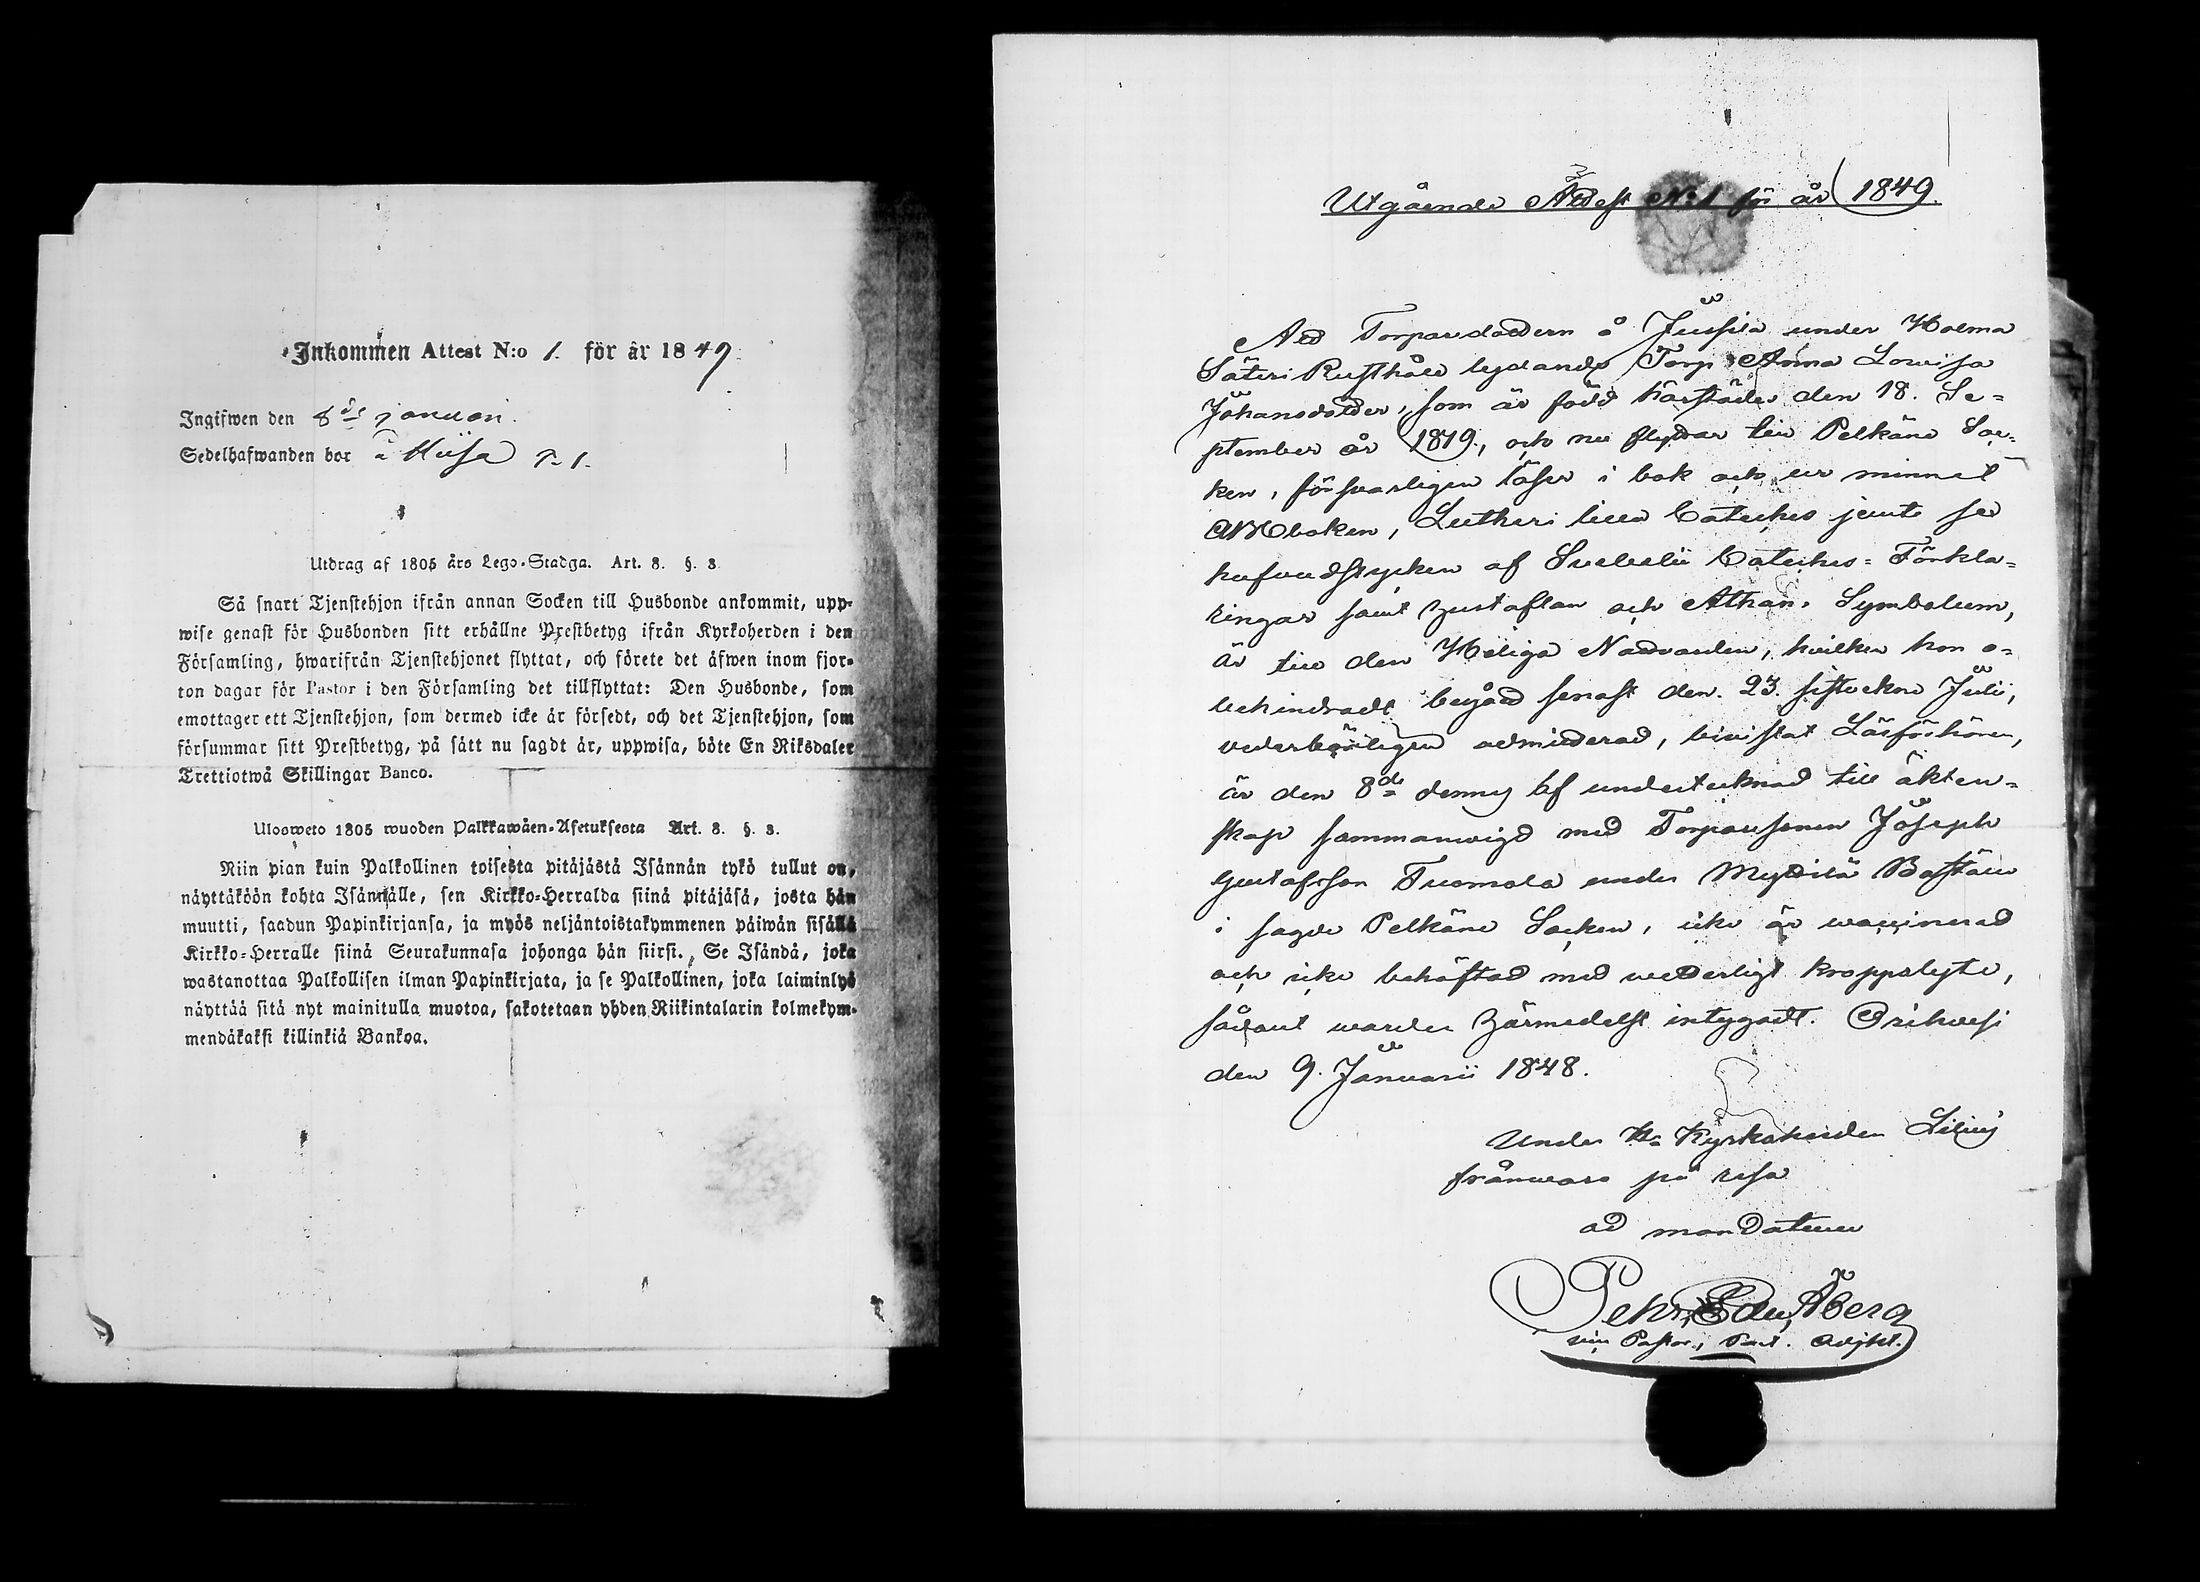 Inkommen Attest N:o 1. för år 1849
Ingifwen den 8de januari.
Sedelhafwanden bor å T. 1.
Utdrag af 1805 års Lego-Stadga. Art. 3. §. 3
Så snart Tjenstehjon ifrån annan Socken till Husbonde ankommit, upp-
wise genast för Husbonden sitt erhållne Prestbetyg ifrån Kyrkoherden i den
Församling, hwarifrån Tjenstehjonet flyttat, och förete det äfwen inom fjor-
ton dagar för Pastor i den Församling det tillflyttat: Den Husbonde, som
emottager ett Tjenstehjon, som dermed icke är försedt, och det Tjenstehjon, som
försummar sitt Prestbetyg, på sätt nu sagdt är, uppwisa, böte En Riksdaler
Trettiotwå Skillingar Banco.
Ulosweto 1805 wuoden Palkkawäen-Asetuksesta Art. 3. §. 3.
Niin pian kuin Palkollinen toisesta pitäjästä Isännän tykö tullut on,
näyttäköön kohta Isännälle, sen Kirkko-Herralda siinä pitäjäsä, josta hän
muutti, saadun Papinkirjansa, ja myös neljäntoistakymmenen päiwän sisällä
Kirkko-Herralle siinä Seurakunnasa johonga hän siirsi. Se Isändä, joka
wastanottaa Palkollisen ilman Papinkirjata, ja se Palkollinen, joka laiminlyö
näyttää sitä nyt mainitulla muotoa, sakotetaan yhden Riikintalarin kolmekym-
mendäkaksi killinkiä Bankoa.
Utgående Attest No 1 för år 1849.
Att Torparedottern å Jussila under Holma
Säteri Rusthåll lydande Torp Anna Lovisa
Johansdotter, som är född härstädes den 18. Se-
ptember år 1819, och nu flyttar till Pelkäne Soc-
ken, försvarligen läser i bok och ur minnet
ABCboken, Lutheri lilla Cateches jemte sex
hufvudstycken af Svebelii Cateches-Förkla-
ringar samt hustaflan och Athan. Symbolum,
är till den Heliga Nattvarden, hvilken hon o-
behindradt begådt senast den 23. sistvekne Julii,
vederbörligen admitterad, bivistat Läsförhören,
är den 8de dennes af undertecknad till äkten-
skap sammanvigd med Torparesonen Joseph
Gustafsson Tuomola under Myttilä Boställe
i sagde Pelkäne Socken, icke är vaccinerad
och icke behäftad med vederligt kroppslyte,
sådant warder härmedelst intygadt. Orihvesi
den 9. Januarii 1848.
Under Hr Kyrkoherden Lilius
frånvaro på resa
ad mandatum
Pehr Edv. Åberg
vice Pastor, Past. Adjkt.